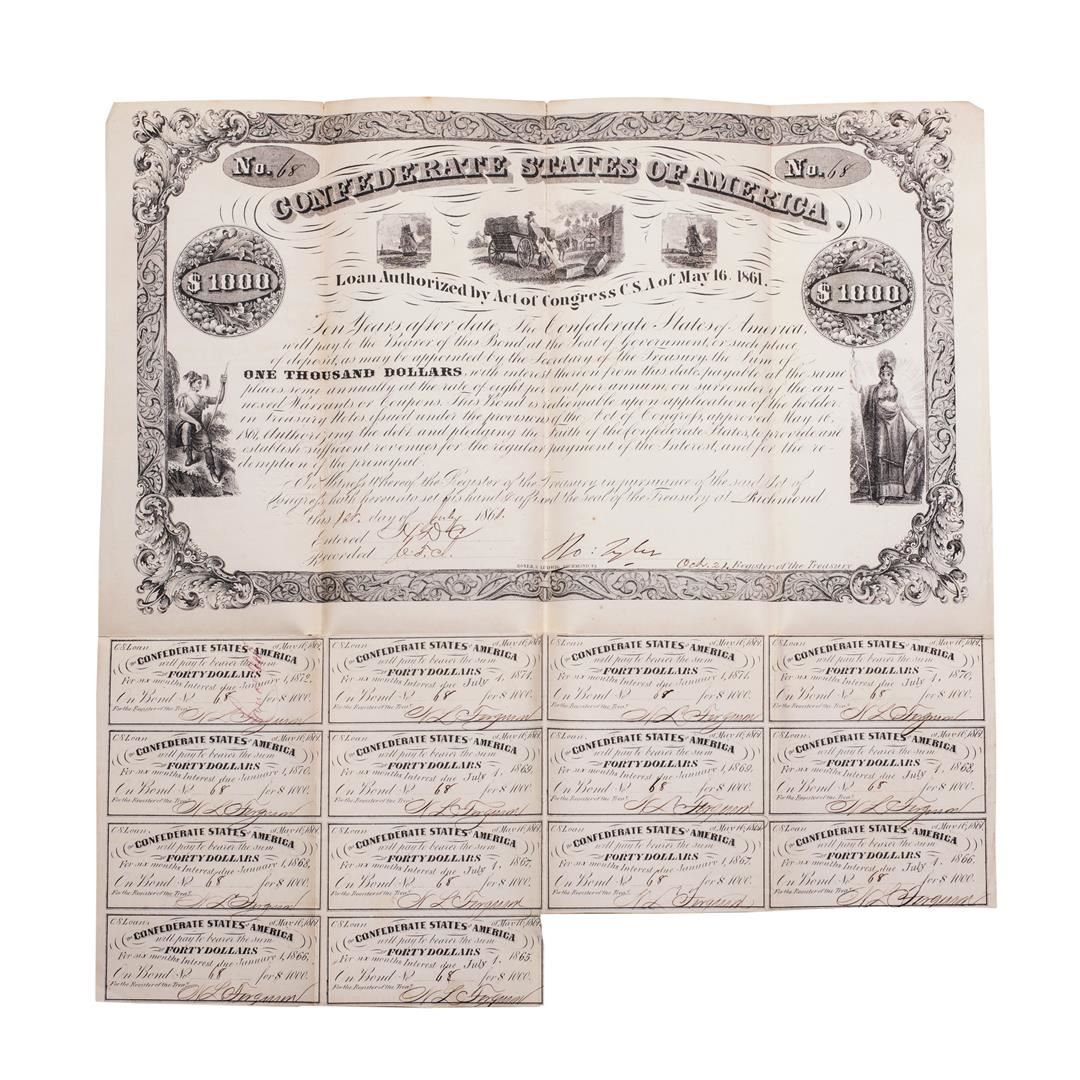 No. 68
No. 68
CONFEDERATE STATES OF AMERICA
Loan Authorized by Act of Congress C S A of May 16. 1861.
$ 1000
$ 1000
Ten Years after date, The Confederate States of America,
will pay to the Bearer of this Bond at the Seat of Government, or such place
of deposit, as may be appointed by the Secretary of the Treasury, the Sum of
ONE THOUSAND DOLLARS, with interest thereon from this date, payable at the same
place semi annually at the rate of eight per cent per annum, on surrender of the an-
nexed Warrants or Coupons. This Bond is redeemable upon application of the holder
in Treasury Notes issued under the provisions of the Act of Congress, approved May 16,
1861, Authorizing the debt, and pledging the Faith of the Confederate States, to provide and
establish sufficient revenues for the regular payment of the Interest, and for the re-
demption of the principal.
In Witness Whereof the Register of the Treasury in pursuance of the said Act of
Congress, hath hereunto set his hand & affixed the seal of the Treasury at Richmond
this 1st. day of July 1861.
Entered
Recorded
Ro: Tyler
Oct. 21, Register of the Treasury
C.S. Loan of May 16, 1861.
The CONFEDERATE STATES of AMERICA
will pay to bearer the sum
of FORTY DOLLARS
For six months Interest due January 1, 1872,
On Bond No 68 for $ 1000.
For the Register of the Treasy.
W L Ferguson
C.S. Loan of May 16, 1861.
The CONFEDERATE STATES of AMERICA
will pay to bearer the sum
of FORTY DOLLARS
For six months Interest due July 1, 1871.
On Bond No 68 for $ 1000.
For the Register of the Treasy.
W L Ferguson
C.S. Loan of May 16, 1861.
The CONFEDERATE STATES of AMERICA
will pay to bearer the sum
of FORTY DOLLARS
For six months Interest due January 1, 1871.
On Bond No 68 for $ 1000.
For the Register of the Treasy.
W L Ferguson
C.S. Loan of May 16, 1861.
The CONFEDERATE STATES of AMERICA
will pay to bearer the sum
of FORTY DOLLARS
For six months Interest due July 1, 1870,
On Bond No 68 for $ 1000.
For the Register of the Treasy.
W L Ferguson
C.S. Loan of May 16, 1861.
The CONFEDERATE STATES of AMERICA
will pay to bearer the sum
of FORTY DOLLARS
For six months Interest due January 1, 1870,
On Bond No 68 for $ 1000.
For the Register of the Treasy.
W L Ferguson
C.S. Loan of May 16, 1861.
The CONFEDERATE STATES of AMERICA
will pay to bearer the sum
of FORTY DOLLARS
For six months Interest due July 1, 1869,
On Bond No 68 for $ 1000.
For the Register of the Treasy.
W L Ferguson
C.S. Loan of May 16, 1861.
The CONFEDERATE STATES of AMERICA
will pay to bearer the sum
of FORTY DOLLARS
For six months Interest due January 1, 1869,
On Bond No 68 for $ 1000.
For the Register of the Treasy.
W L Ferguson
C.S. Loan of May 16, 1861.
The CONFEDERATE STATES of AMERICA
will pay to bearer the sum
of FORTY DOLLARS
For six months Interest due July 1, 1868,
On Bond No 68 for $ 1000.
For the Register of the Treasy.
W L Ferguson
C.S. Loan of May 16, 1861.
The CONFEDERATE STATES of AMERICA
will pay to bearer the sum
of FORTY DOLLARS
For six months Interest due January 1, 1868,
On Bond No 68 for $ 1000.
For the Register of the Treasy.
W L Ferguson
C.S. Loan of May 16, 1861.
The CONFEDERATE STATES of AMERICA
will pay to bearer the sum
of FORTY DOLLARS
For six months Interest due July 1, 1867,
On Bond No 68 for $ 1000.
For the Register of the Treasy.
W L Ferguson
C.S. Loan of May 16, 1861.
The CONFEDERATE STATES of AMERICA
will pay to bearer the sum
of FORTY DOLLARS
For six months Interest due January 1, 1867,
On Bond No 68 for $ 1000.
For the Register of the Treasy.
W L Ferguson
C.S. Loan of May 16, 1861.
The CONFEDERATE STATES of AMERICA
will pay to bearer the sum
of FORTY DOLLARS
For six months Interest due July 1, 1866,
On Bond No 68 for $ 1000.
For the Register of the Treasy.
W L Ferguson
C.S. Loan of May 16, 1861.
The CONFEDERATE STATES of AMERICA
will pay to bearer the sum
of FORTY DOLLARS
For six months Interest due January 1, 1866,
On Bond No 68 for $ 1000.
For the Register of the Treasy.
W L Ferguson
C.S. Loan of May 16, 1861.
The CONFEDERATE STATES of AMERICA
will pay to bearer the sum
of FORTY DOLLARS
For six months Interest due July 1, 1865,
On Bond No 68 for $ 1000.
For the Register of the Treasy.
W L Ferguson